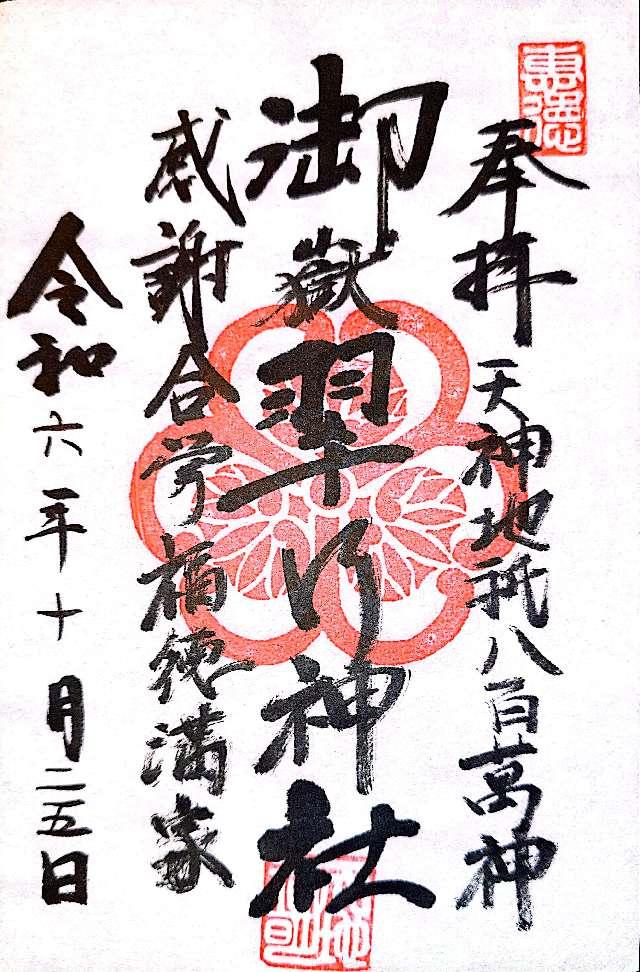 奉拝 天神地祇八百萬神
御嶽翆乃神社
感謝合掌福徳満家
令和六年十月二五日